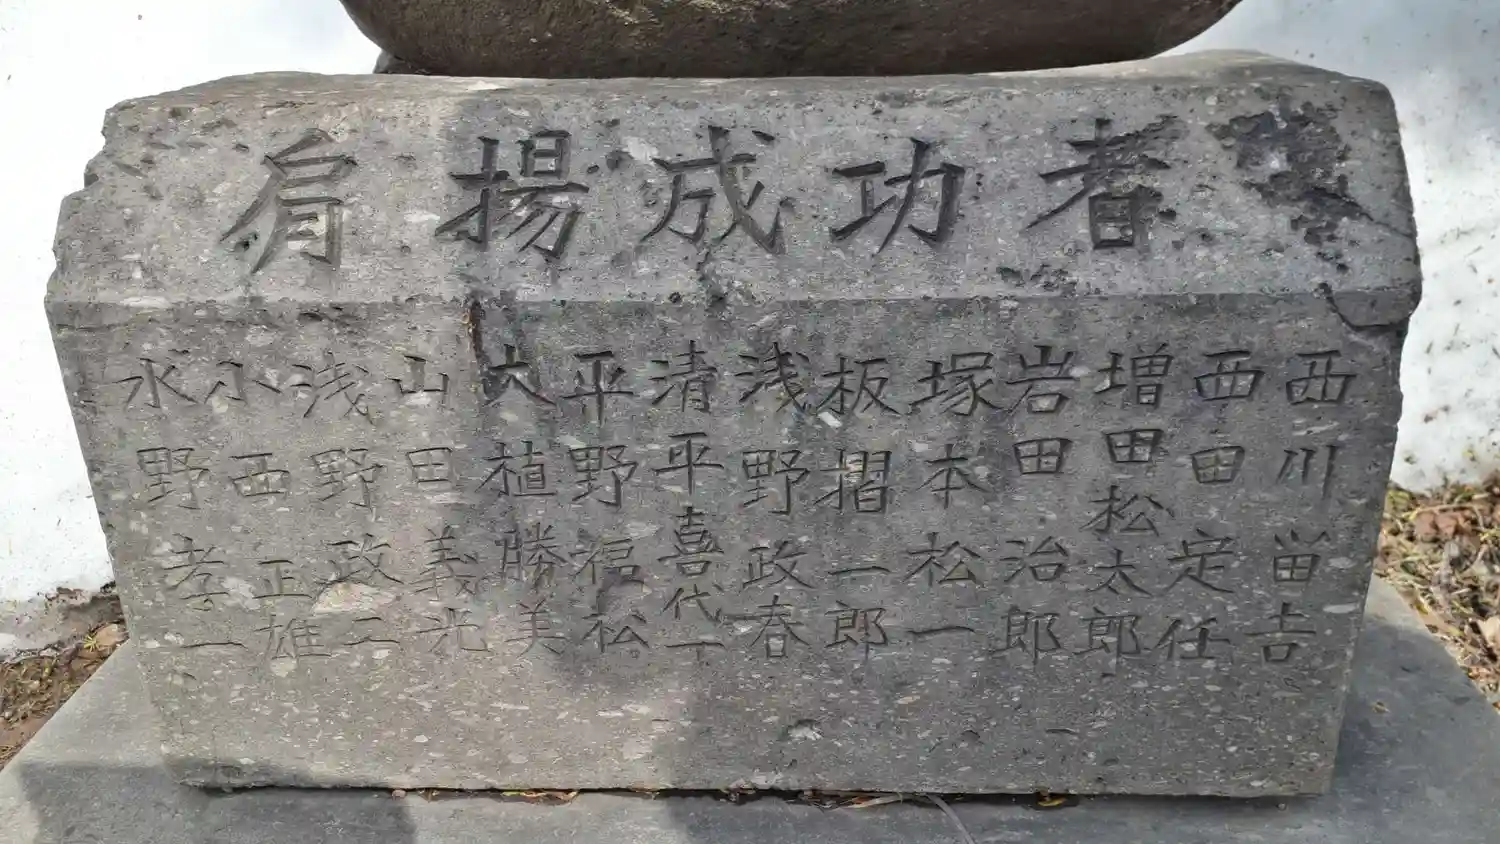 肩揚成功者
西川留吉
西田定任
増田松太郎
岩田治郎
塚本松一
板摺一郎
浅野政春
清平喜代一
平野福松
大植勝美
山田義光
浅野政二
小西正雄
水野孝一